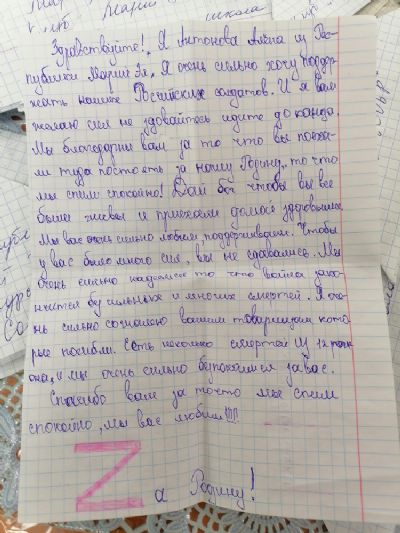 Марий
школа
Здравствуйте! Я Антонова Алёна из Рес-
публики Марий Эл. Я очень сильно хочу поддер-
жать наших Российских солдатов. И я вам
желаю сил не здовайтесь идите до конца.
Мы благодарны вам за то что вы поеха-
ли туда постоять за нашу Родину, то что
мы спим спокойно! Дай бог чтобы вы все
были живы и приехали домой здоровыми.
Мы вас очень сильно любим, поддерживаем. Чтобы
у вас было много сил, вы не сдавались. Мы
очень сильно надеемся то что война зако-
нчится без сильных и многих смертей. Я оче-
нь сильно созналею вашим товарищам кото
рые погибли. Есть несколько смертей из 12
и мы очень сильно беспокоимся за вас.
Спасибо вам за то что мы спим
спокойно, мы вас любим!!!
Z а Родину!